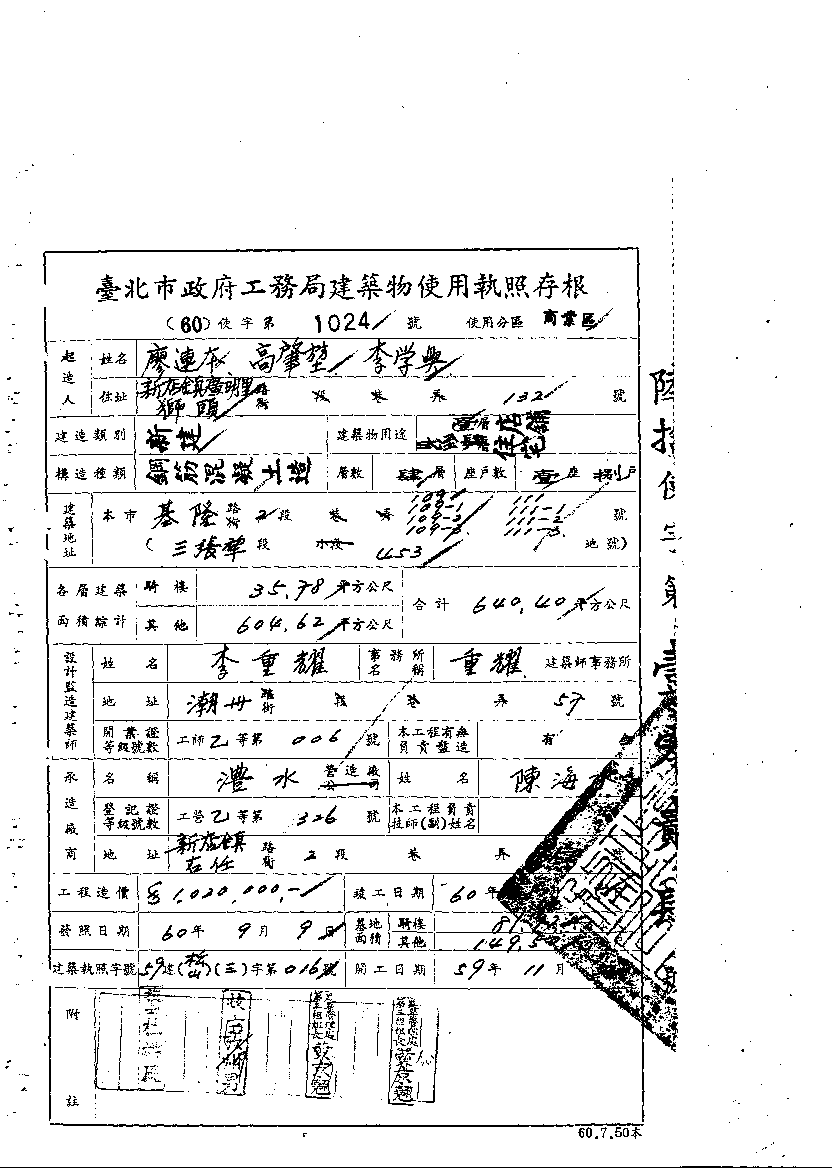 臺北市政府工務局建築物使用執照存根
(60)使字第 1024 號 使用分區 商業區
起造人 姓名 廖連本 高肇堃 李学典
住址 新店鎮廣明里獅頭 路街 段 巷 弄 132 號
建造類別 新建 建築物用途 店舖 住宅
構造種類 鋼筋混凝土造 層數 肆層 座戶數 壹座 捌戶
建築地址 本市 基隆 路街 2段 巷 弄 109 109-1 109-2 109-3 111 111-1 111-2 111-3 號
(三張犂 段 小段 453 地號)
各層建築面積綜計 騎樓 35.78 平方公尺 合計 640.40 平方公尺
其他 604.62 平方公尺
設計監造建築師 姓名 李重耀 事務所名稱 重耀 建築師事務所
地址 潮州 路街 段 巷 弄 57 號
開業證等級號數 工師乙等第 006 號 本工程有無負責監造 有
承造廠商 名稱 澧水 營造廠公司 姓名 陳海
登記證等級號數 工營乙等第 326 號 本工程負責技師(副)姓名
地址 新店鎮 路街 2段 巷 弄 號
工程造價 1,020,000,- 竣工日期 60年
發照日期 60年 9月 9日 基地面積 騎樓
其他
建築執照字號 59建(松山)(三)字第016號 開工日期 59年 11月
附註
60.7.50本